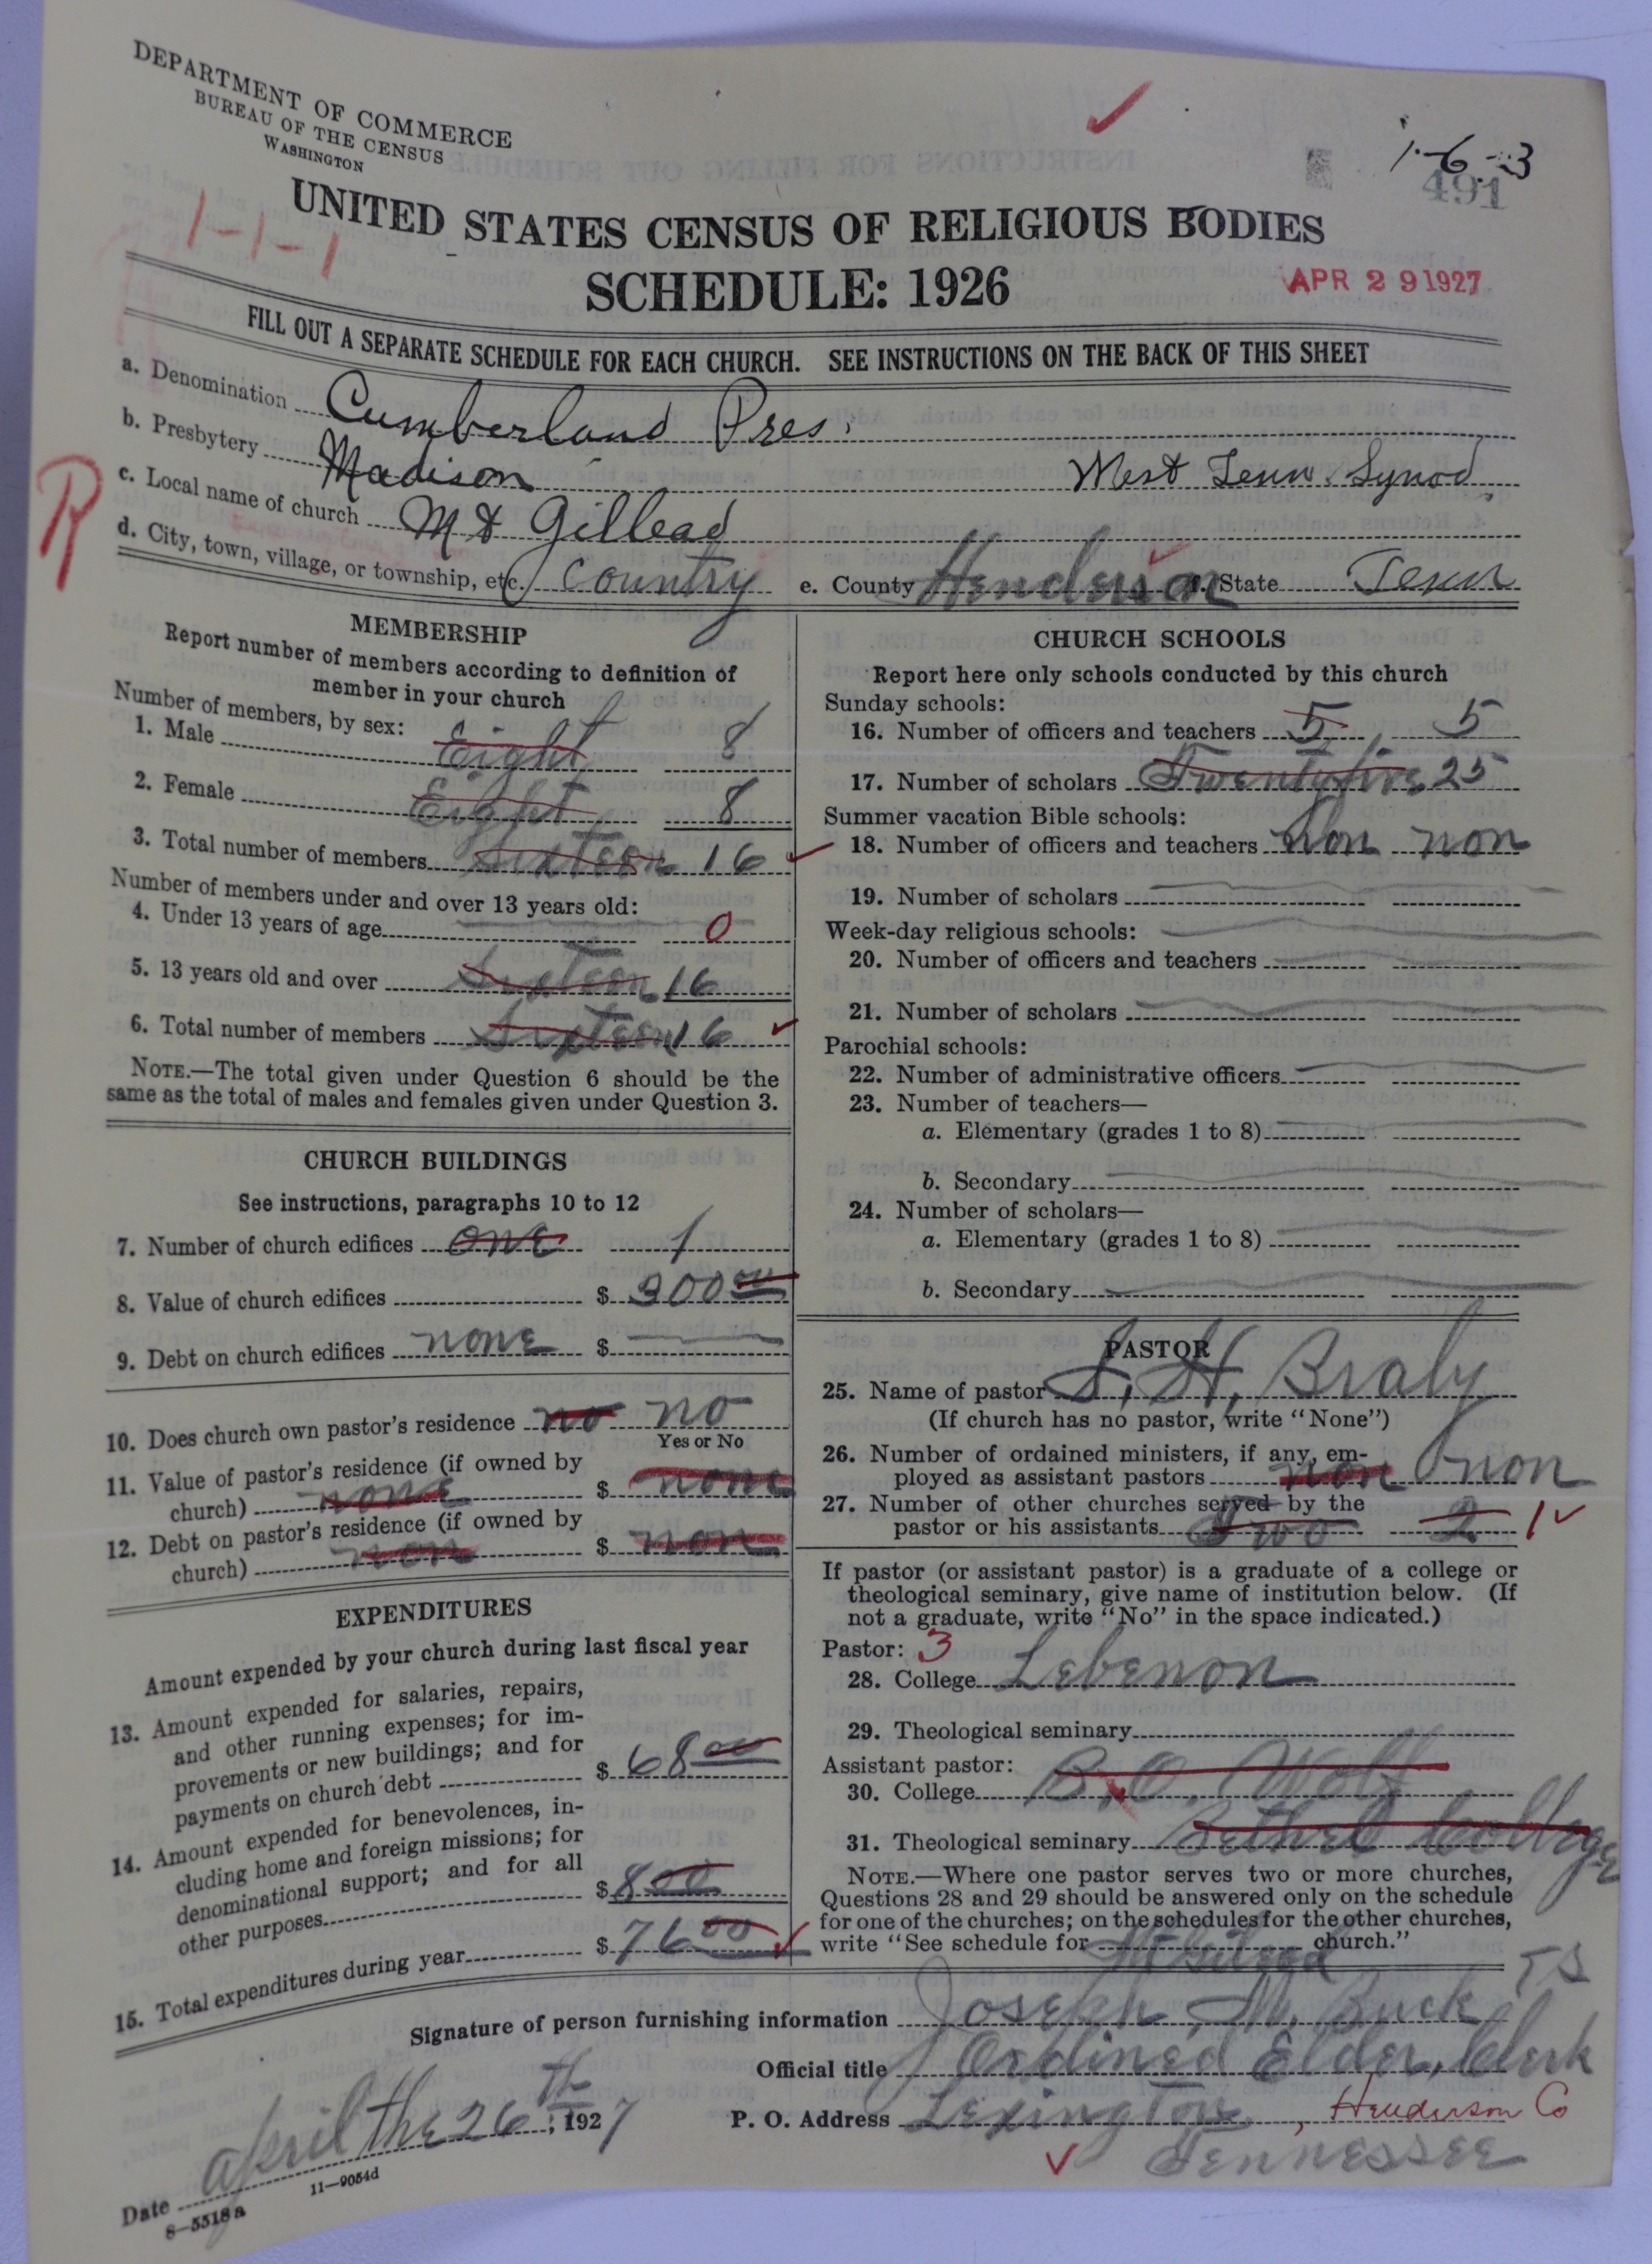 DEPARTMENT OF COMMERCE
BUREAU OF THE CENSUS
WASHINGTON
1-6-3
491
1-1-1
UNITED STATES CENSUS OF RELIGIOUS BODIES
SCHEDULE: 1926
APR 29 1927
FILL OUT A SEPARATE SCHEDULE FOR EACH CHURCH. SEE INSTRUCTIONS ON THE BACK OF THIS SHEET
R
a. Denomination Cumberland Pres.
b. Presbytery Madison West Tenn. Synod
c. Local name of church Mt Gillead
d. City, town, village, or township, etc. Country e. County Henderson State Tenn
MEMBERSHIP
Report number of members according to definition of
member in your church
Number of members, by sex:
1. Male Eight 8
2. Female Eight 8
3. Total number of members Sixteen 16
Number of members under and over 13 years old:
4. Under 13 years of age 0
5. 13 years old and over Sixteen 16
6. Total number of members Sixteen 16
NOTE.—The total given under Question 6 should be the
same as the total of males and females given under Question 3.
CHURCH BUILDINGS
See instructions, paragraphs 10 to 12
7. Number of church edifices one 1
8. Value of church edifices $ 300 00
9. Debt on church edifices none $
10. Does church own pastor's residence no no
Yes or No
11. Value of pastor's residence (if owned by
church) none $ none
12. Debt on pastor's residence (if owned by
church) non $ non
EXPENDITURES
Amount expended by your church during last fiscal year
13. Amount expended for salaries, repairs,
and other running expenses; for im-
provements or new buildings; and for
payments on church debt $ 68 00
14. Amount expended for benevolences, in-
cluding home and foreign missions; for
denominational support; and for all
other purposes $ 8 00
15. Total expenditures during year $ 76 00
CHURCH SCHOOLS
Report here only schools conducted by this church
Sunday schools:
16. Number of officers and teachers 5 5
17. Number of scholars Twentyfive 25
Summer vacation Bible schools:
18. Number of officers and teachers non non
19. Number of scholars
Week-day religious schools:
20. Number of officers and teachers
21. Number of scholars
Parochial schools:
22. Number of administrative officers
23. Number of teachers—
a. Elementary (grades 1 to 8)
b. Secondary
24. Number of scholars—
a. Elementary (grades 1 to 8)
b. Secondary
PASTOR
25. Name of pastor H. Braly
(If church has no pastor, write "None")
26. Number of ordained ministers, if any, em-
ployed as assistant pastors non non
27. Number of other churches served by the
pastor or his assistants Two 2 1
If pastor (or assistant pastor) is a graduate of a college or
theological seminary, give name of institution below. (If
not a graduate, write "No" in the space indicated.)
Pastor: 3
28. College Lebenon
29. Theological seminary
Assistant pastor:
30. College B. O. Wolf
31. Theological seminary Bethel College
NOTE.—Where one pastor serves two or more churches,
Questions 28 and 29 should be answered only on the schedule
for one of the churches; on the schedules for the other churches,
write "See schedule for Mt Gilead church."
Signature of person furnishing information Joseph M. Buck
Official title Ordined Elder, Clerk
P. O. Address Lexington, Henderson Co
Tennessee
Date april the 26 th, 1927
8—5518a 11—9054d